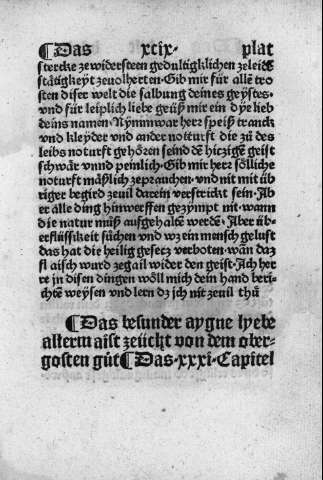 ¶Das xtix· plat
stercke ze widersteen gedultigklichen ze leidē
stātigkeyt zeuolherten· Gib mir für allē tro
sten diser welt die salbung deines geystes·
vnd für leiplich liebe geüß mir ein dye lieb
deins namen· Nymm war herr speiß tranck
vnd kleyder vnd ander notturft die zů des
leibs noturft gehören seind dē hiczigē geist
schwār vnnd peinlich· Gib mir herr sölliche
noturft māßlich zeprauchen· vnd nit mit üb
riger begird zeuil darein verstrickt sein· Ab
er alle ding hinwerffen gezympt nit· wann
die natur můß aufgehaltē werdē· Aber üb
erflüssikeit sůchen vnd wz ein mensch gelust
das hat die heilig gesecz verboten· wān daz
flaisch wurd zegail wider den geist· Ach her
re in disen dingen wöll mich dein hand beri
chtē weysen vnd lern dz ich nit zeuil thů
¶Das besunder aygne lyebe
allermaist zeückt von dem ober-
gosten gůt ¶Das·xxxi·Capitel